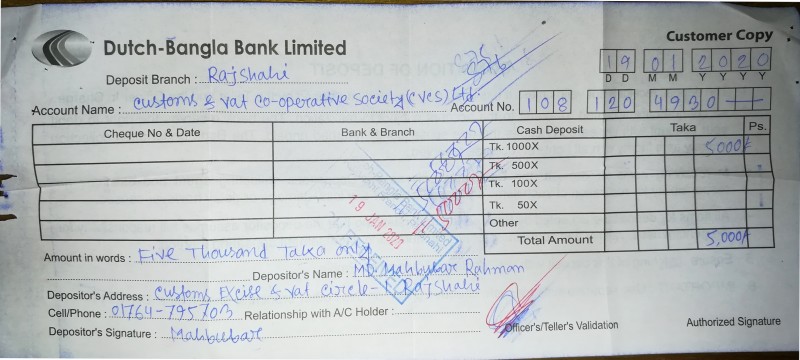 Dutch-Bangla Bank Limited
Customer Copy
19 01 2020
D D M M Y Y Y Y
Deposit Branch : Rajshahi
Account Name : Customs & Vat Co-operative Society (CVCS) Ltd. Account No. 108 120 4930
Cheque No & Date Bank & Branch Cash Deposit Taka Ps.
Tk. 1000X 5000/-
Tk. 500X
Tk. 100X
Tk. 50X
Other
Total Amount 5,000/-
19 JAN 2020
Amount in words : Five Thousand Taka only
Depositor's Name : MD. Mahbubar Rahman
Depositor's Address : Customs Excise & Vat circle- Rajshahi
Cell/Phone : 01764-795703 Relationship with A/C Holder :
Depositor's Signature : Mahbubar
Officer's/Teller's Validation
Authorized Signature